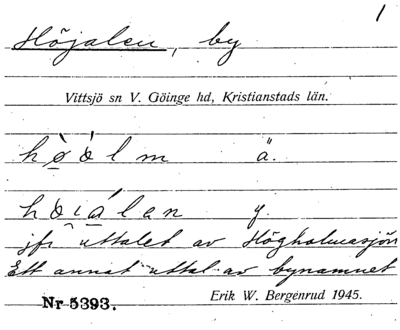 1
Höjalen, by
Vittsjö sn V. Göinge hd, Kristianstads län.
hø̀ólm ä.
hɔɩálan y.
jfr uttalet av Högholmasjön
Ett annat uttal av bynamnet
Nr 5393. Erik W. Bergenrud 1945.